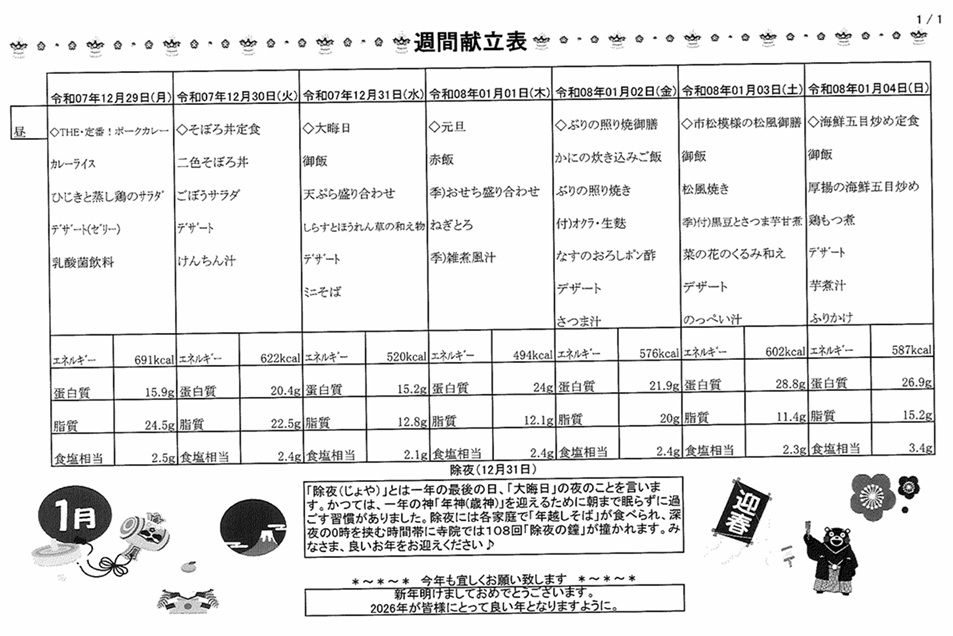 1 / 1
週間献立表
令和07年12月29日(月) 令和07年12月30日(火) 令和07年12月31日(水) 令和08年01月01日(木) 令和08年01月02日(金) 令和08年01月03日(土) 令和08年01月04日(日)
昼
◇THE・定番！ポークカレー
カレーライス
ひじきと蒸し鶏のサラダ
デザート(ゼリー)
乳酸菌飲料
◇そぼろ丼定食
二色そぼろ丼
ごぼうサラダ
デザート
けんちん汁
◇大晦日
御飯
天ぷら盛り合わせ
しらすとほうれん草の和え物
デザート
ミニそば
◇元旦
赤飯
季)おせち盛り合わせ
ねぎとろ
季)雑煮風汁
◇ぶりの照り焼御膳
かにの炊き込みご飯
ぶりの照り焼き
付)オクラ・生麩
なすのおろしポン酢
デザート
さつま汁
◇市松模様の松風御膳
御飯
松風焼き
季)付)黒豆とさつま芋甘煮
菜の花のくるみ和え
デザート
のっぺい汁
◇海鮮五目炒め定食
御飯
厚揚の海鮮五目炒め
鶏もつ煮
デザート
芋煮汁
ふりかけ
エネルギー 691kcal エネルギー 622kcal エネルギー 520kcal エネルギー 494kcal エネルギー 576kcal エネルギー 602kcal エネルギー 587kcal
蛋白質 15.9g 蛋白質 20.4g 蛋白質 15.2g 蛋白質 24g 蛋白質 21.9g 蛋白質 28.8g 蛋白質 26.9g
脂質 24.5g 脂質 22.5g 脂質 12.8g 脂質 12.1g 脂質 20g 脂質 11.4g 脂質 15.2g
食塩相当 2.5g 食塩相当 2.4g 食塩相当 2.1g 食塩相当 2.4g 食塩相当 2.4g 食塩相当 2.3g 食塩相当 3.4g
除夜(12月31日)
「除夜(じょや)」とは一年の最後の日、「大晦日」の夜のことを言いま
す。かつては、一年の神「年神(歳神)」を迎えるために朝まで眠らずに過
ごす習慣がありました。除夜には各家庭で「年越しそば」が食べられ、深
夜の0時を挟む時間帯に寺院では108回「除夜の鐘」が撞かれます。み
なさま、良いお年をお迎えください♪
1月
迎春
＊～＊～＊ 今年も宜しくお願い致します ＊～＊～＊
新年明けましておめでとうございます。
2026年が皆様にとって良い年となりますように。